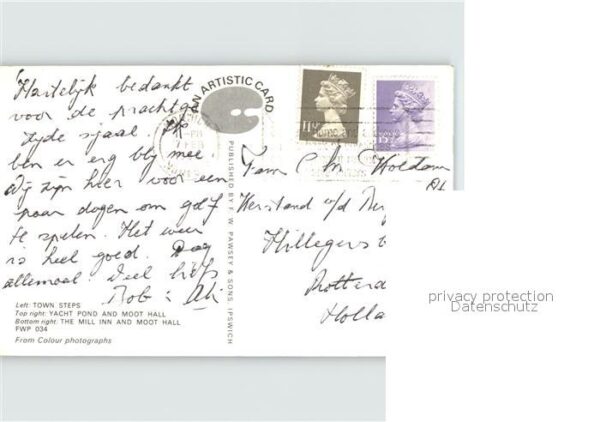 Hartelijk bedankt
voor de prachtige
zyde sjaal. Ik
ben er erg bly mee.
Wij zijn hier voor een
paar dagen om golf
te spelen. Het weer
is heel goed. Dag
allemaal. Veel liefs
Rob &
AN ARTISTIC CARD
PUBLISHED BY F. W. PAWSEY & SONS, IPSWICH
Fam
Hillegers
Rotterd
Holla
Left: TOWN STEPS
Top right: YACHT POND AND MOOT HALL
Bottom right: THE MILL INN AND MOOT HALL
FWP 034
From Colour photographs
privacy protection
Datenschutz